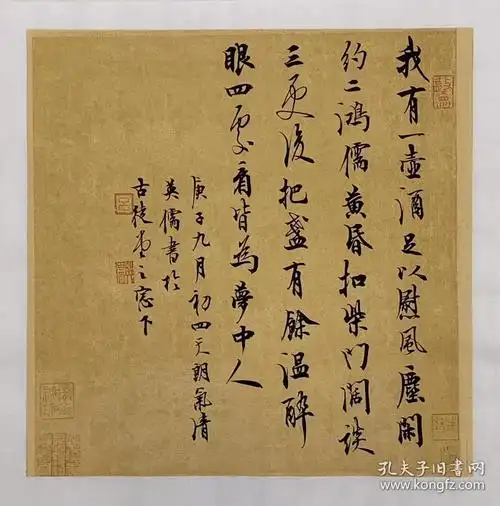 我有一壶酒足以慰风尘闲
约二鸿儒黄昏扣柴门阔谈
三更後把盏有餘温醉
眼四处看皆为夢中人
庚子九月初四天朗氣清
英儒書於
古徒堂之窓下
孔夫子旧书网
www.kongfz.com